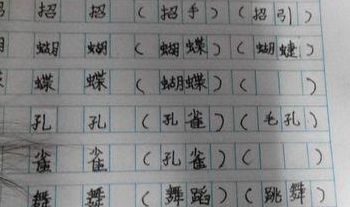 招 招 (招手) (招引)
蝴 蝴 (蝴蝶) (蝴蜨)
蝶 蝶 (蝴蝶) ( )
孔 孔 (孔雀) (毛孔)
雀 雀 (孔雀) ( )
舞 舞 (舞蹈) (跳舞)